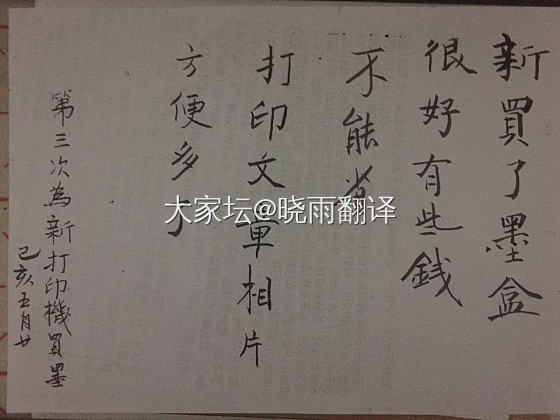 新買了墨盒
很好有些錢
不能省
打印文章相片
方便多了
第三次為新打印機買墨
己亥五月廿
大家坛@晓雨翻译